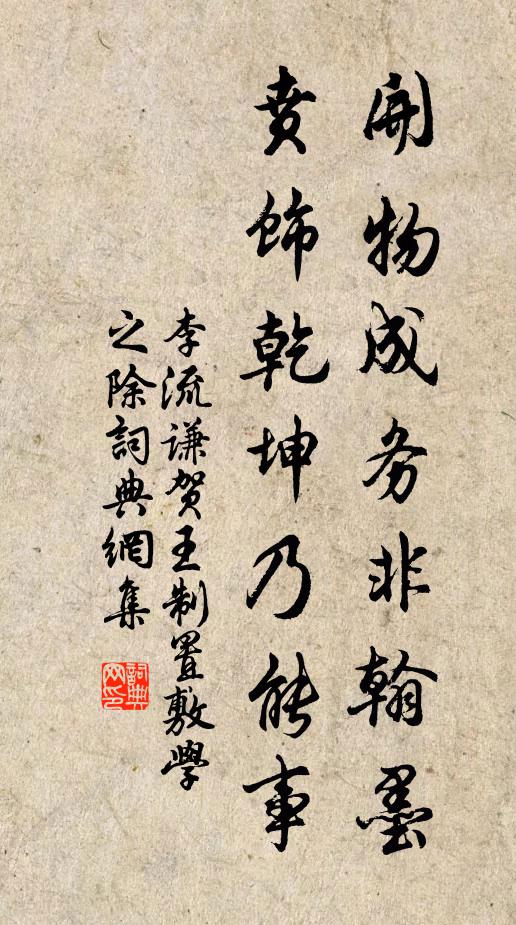 開物成务非翰墨
賁飾乾坤乃能事
李流謙贺王制置敷学
之除詞典網集
詞典网印